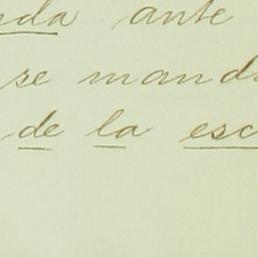 da ante
se mand
de la esc